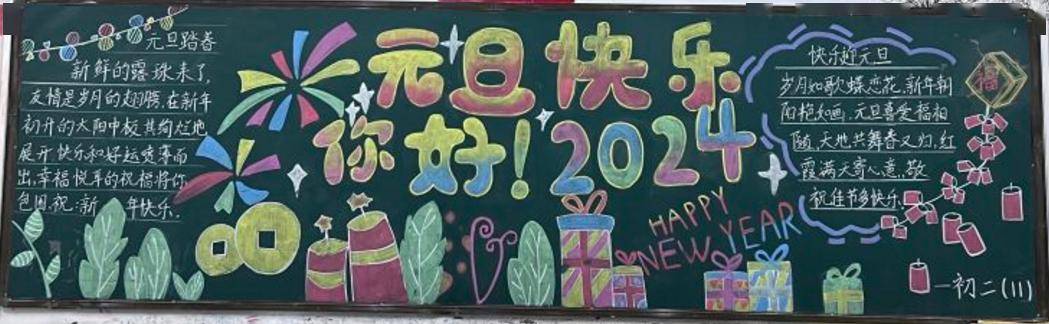 元旦踏春
新鲜的露珠来了,
友情是岁月的翅膀,在新年
初升的太阳中极其绚烂地
展开,快乐和好运喷薄而
出,幸福悦耳的祝福将你
包围,祝:新年快乐.
元旦快乐
你好!2024
HAPPY
NEW YEAR
快乐迎元旦
岁月如歌蝶恋花,新年朝
阳艳如画.元旦喜爱福相
随,天地共舞春又归,红
霞满天寄心意,敬
祝佳节多快乐.
福
一初二(11)